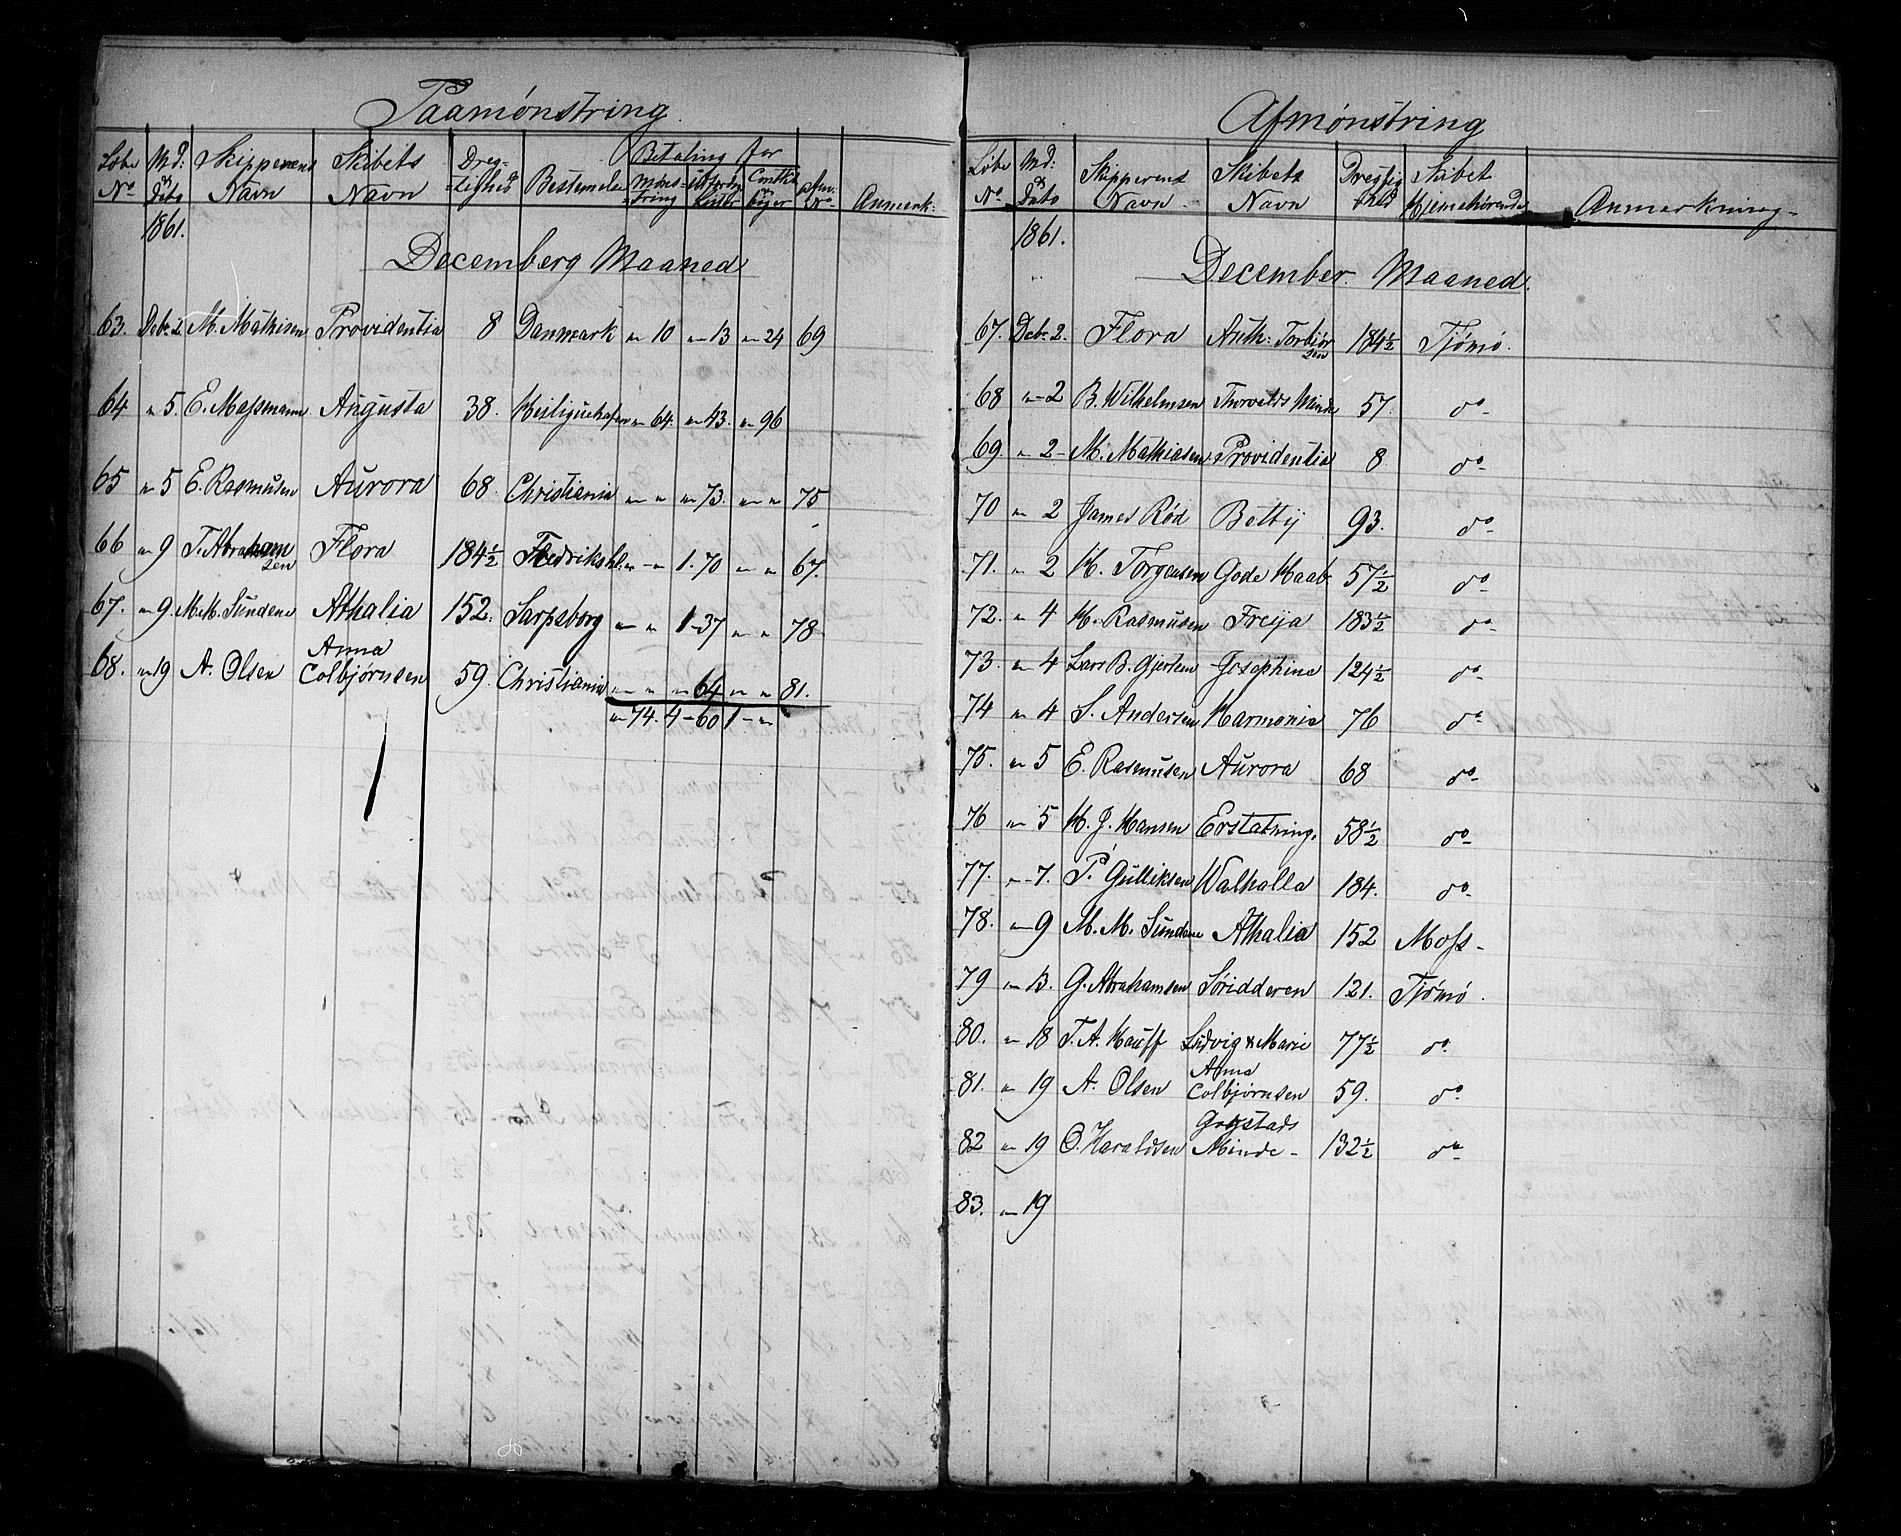 Paamønstring
Løbe No | Md: & Dato | Skipperens Navn | Skibets Navn | Dreg-tighed | Bestemelse | Betaling for | Anmærk:
Møns-tring
1861.
December Maaned
63. Decbr 2 M. Mathisen Providentia 8 Danmark " 10 " 13 " 24 69
64 " 5. E. Massmann Augusta 38. Heiligenhafen " 64. " 43. " 96
65 " 5 E. Rasmusen Aurora 68. Christiania " " " 73. " " 75
66 " 9 T. Abrahamsen Flora 184½ Fredriksh. " - " 1.70 " " 67.
67. " 9. M.M. Sundene Athalia 152. Sarpsborg " " 1-37 " " 78
68. " 19 A. Olsen Anna Colbjørnsen 59. Christiania " " " 64 " " 81.
" 74. 4-60 1-"
Afmønstring
Løbe No | Md: & Dato | Skipperens Navn | Skibets Navn | Dregtighed | Skibet Hjemehørende | Anmerkning
1861.
December Maaned.
67. Decbr 2. Flora Anth: Torbiørsen 184½ Tjømø.
68 " 2 B. Wilhelmsen Thorvalds Minde 57. do
69. " 2 - M. Mathiasen Providentia 8 do
70 " 2 James Rød Betty 93. do
71. " 2 H. Jørgensen Gode Haab 57½ do
72. " 4 H. Rasmusen Freija 183½ do
73. " 4 Lars B. Gjertsen Josephine 124½ do
74 " 4 S. Andersen Harmonia 76 do
75. " 5 E. Rasmusen Aurora 68 do
76 " 5 H. J. Hansen Erstatning. 58½ do
77. " 7. P. Gulliksen Walhalla 184. do
78. " 9 M. M. Sundene Athalia 152 Moss -
79 " 13. G. Abrahamsen Søridderen 121. Tjømø.
80. " 18 T. A. Hauff Ludvig & Marie 77½ do
81. " 19 A. Olsen Anna Colbjørnsen 59. do
82 " 19 O. Haraldsen Gogstads Minde - 132½ do
83. " 19